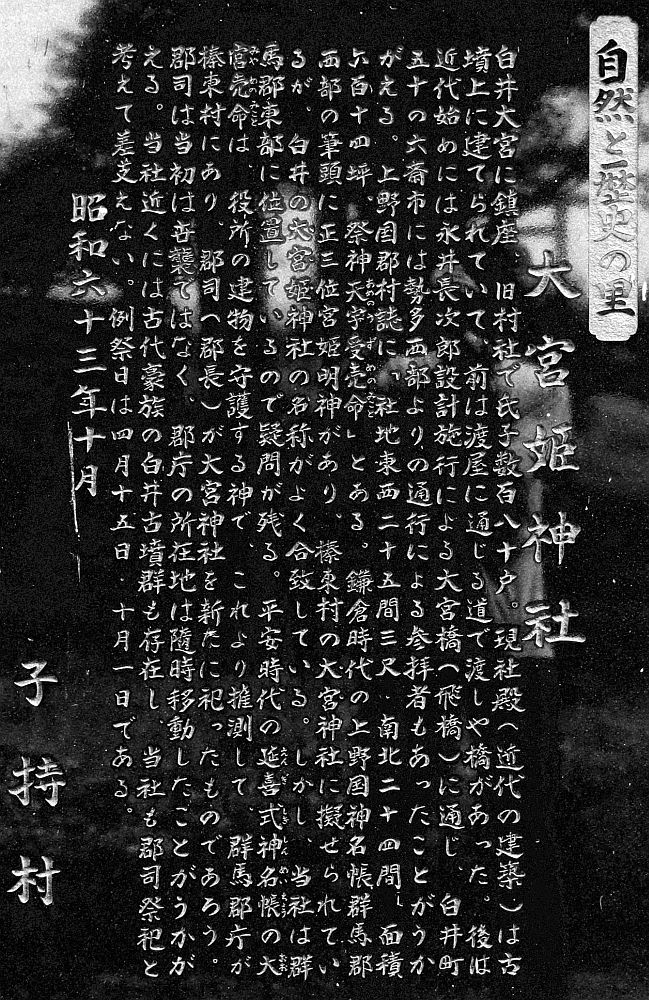 自然と歴史の里
大宮姫神社
白井大宮に鎮座、旧村社で氏子数百八十戸。現社殿(近代の建築)は古
墳上に建てられていて、前は渡屋に通じる道で渡しや橋があった。後は
近代始めには永井長次郎設計施行による大宮橋(飛橋)に通じ、白井町
五十の六斎市には勢多西部よりの通行による参拝者もあったことがうか
がえる。上野国郡村誌に「社地東西二十五間三尺・南北二十四間、面積
六百十四坪、祭神天宇受売命」とある。鎌倉時代の上野国神名帳群馬郡
西部の筆頭に正三位宮姫明神があり、榛東村の大宮神社に擬せられてい
るが、白井の大宮姫神社の名称がよく合致している。しかし、当社は群
馬郡東部に位置しているので疑問が残る。平安時代の延喜式神名帳の大
宮売命は、役所の建物を守護する神で、これより推測して、群馬郡庁が
榛東村にあり。郡司(郡長)が大宮神社を新たに祀ったものであろう。
郡司は当初は世襲ではなく、郡庁の所在地は随時移動したことがうかが
える。当社近くには古代豪族の白井古墳群も存在し、当社も郡司祭祀と
考えて差支えない。例祭日は四月十五日・十月一日である。
昭和六十三年十月
子持村